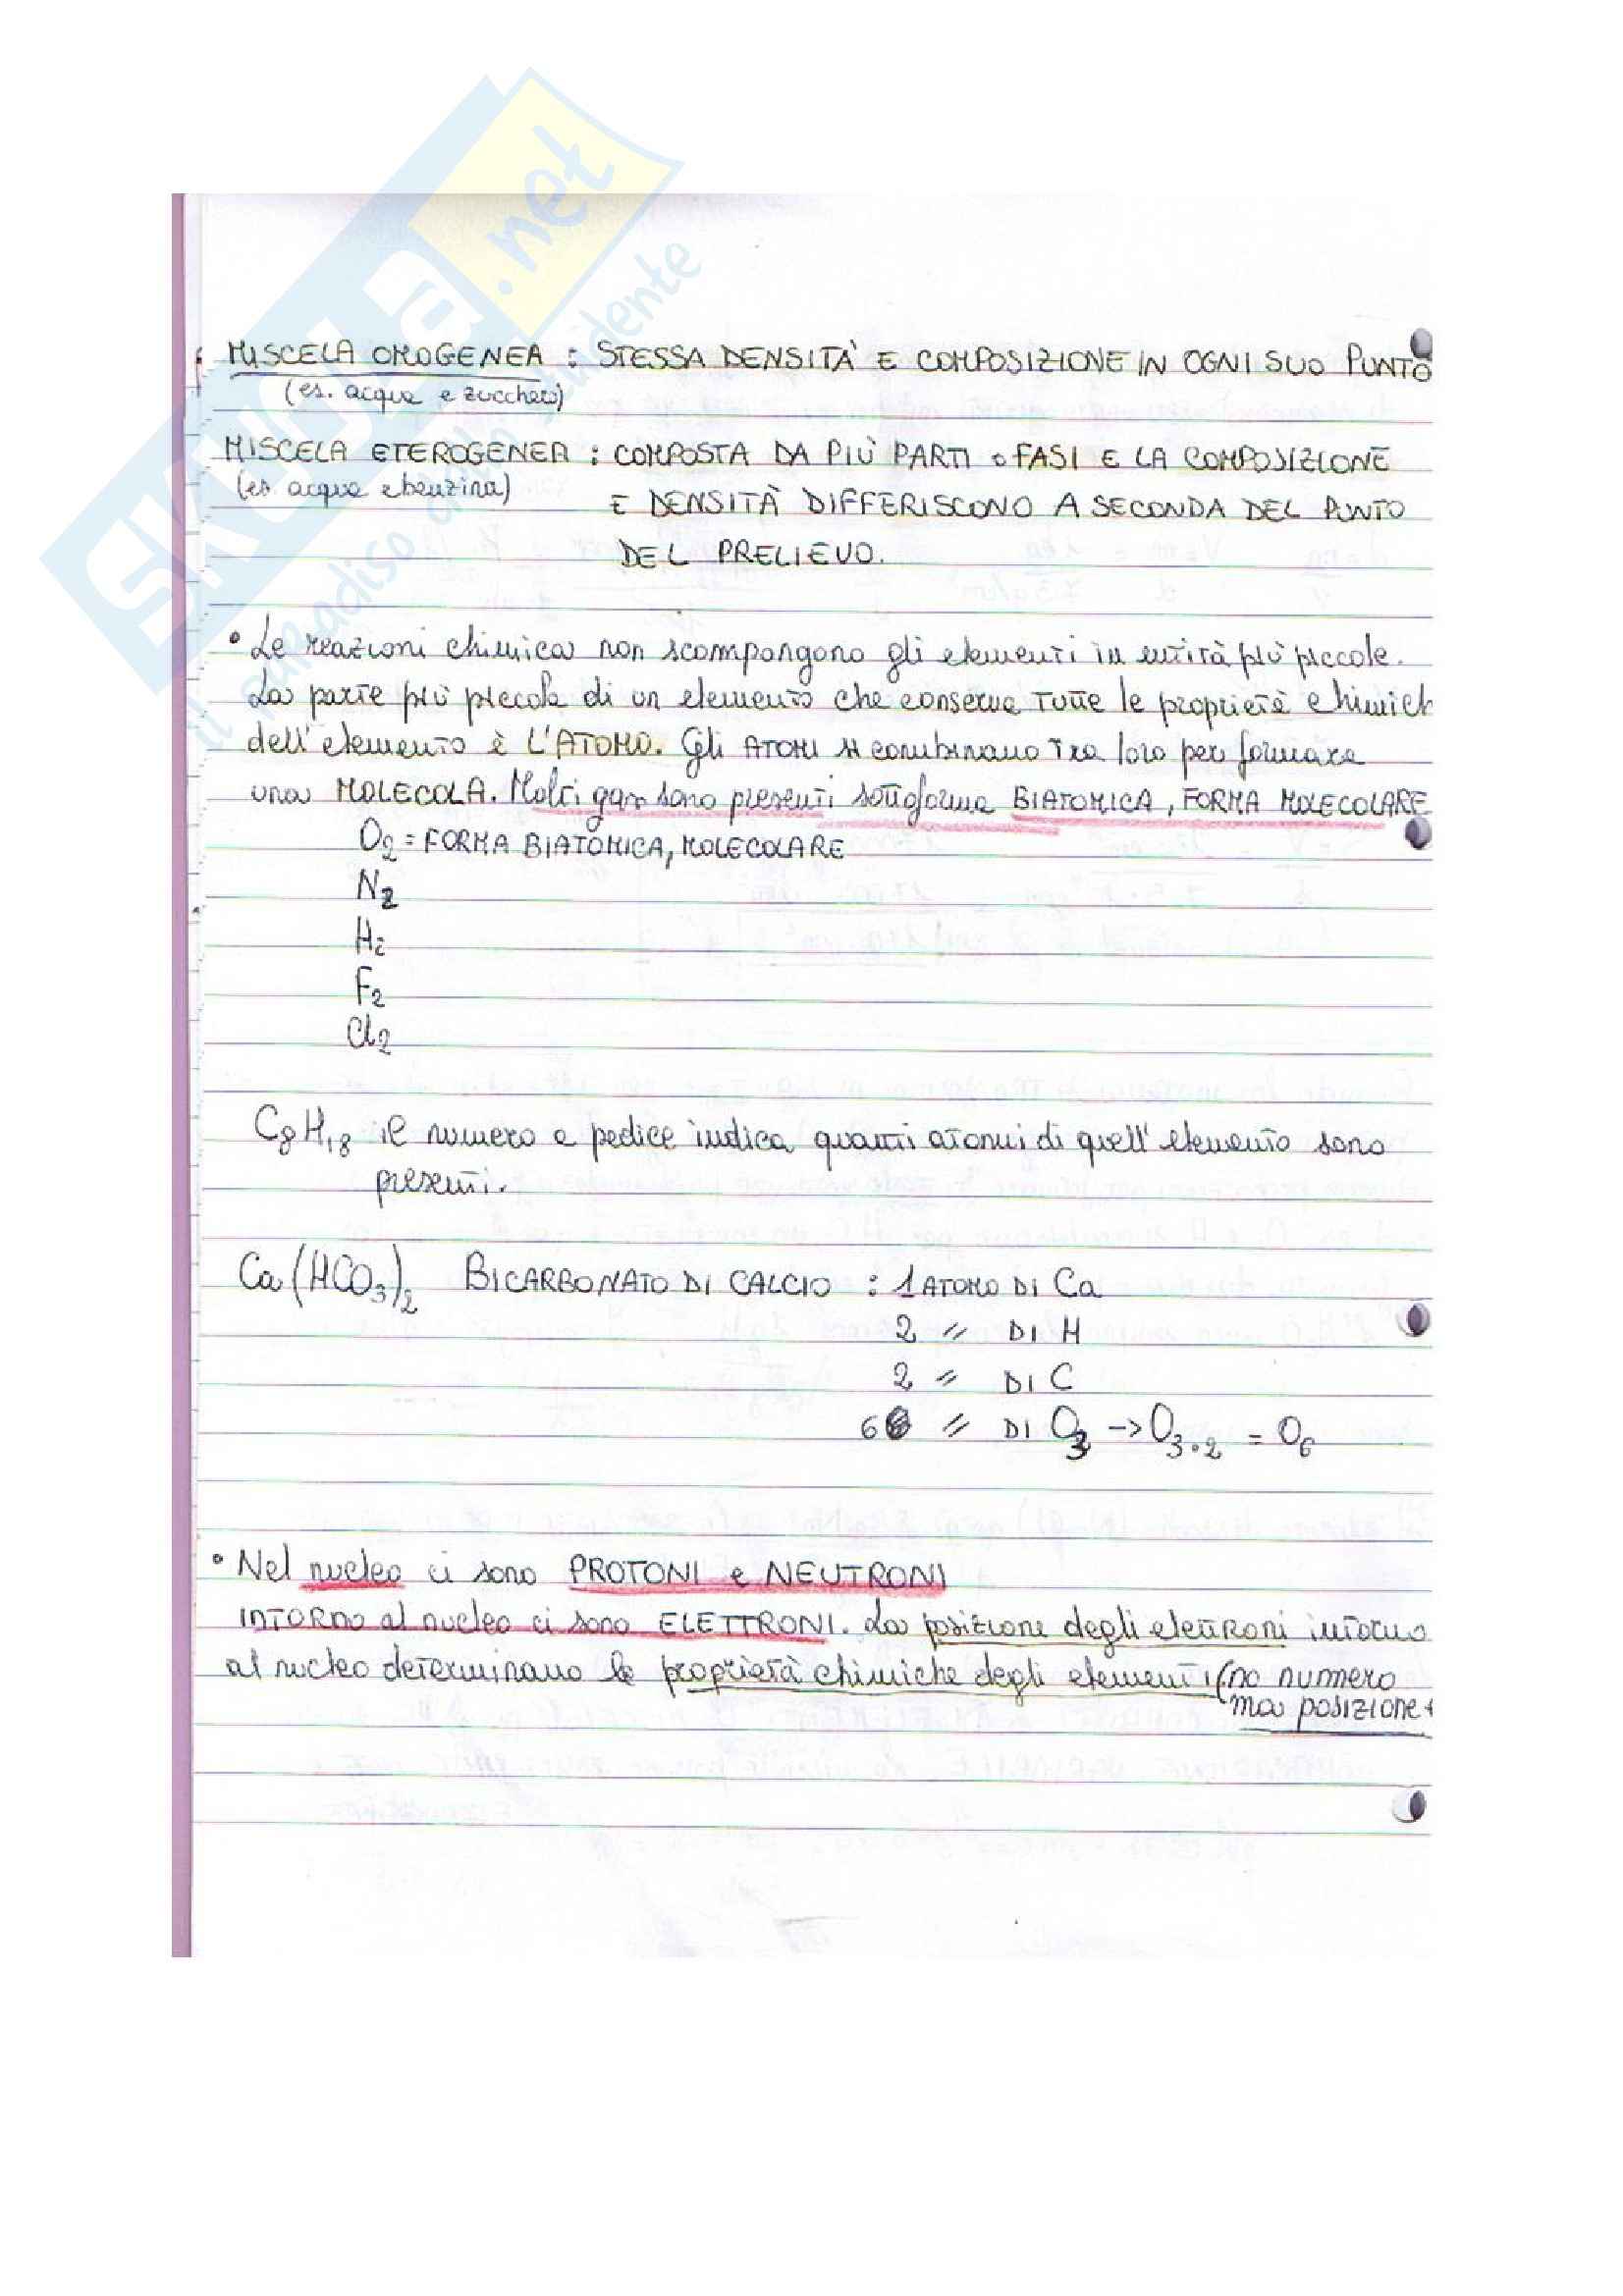 SKUOLA.net
il paradiso dello studente
MISCELA OMOGENEA : STESSA DENSITÀ E COMPOSIZIONE IN OGNI SUO PUNTO
(es. acqua e zucchero)
MISCELA ETEROGENEA : COMPOSTA DA PIÙ PARTI o FASI E LA COMPOSIZIONE
(es. acqua e benzina) E DENSITÀ DIFFERISCONO A SECONDA DEL PUNTO
DEL PRELIEVO.
• Le reazioni chimica non scompongono gli elementi in entità più piccole.
La parte più piccola di un elemento che conserva tutte le proprietà chimich
dell'elemento è L'ATOMO. Gli ATOMI si combinano tra loro per formare
una MOLECOLA. Molti gas sono presenti sottoforma BIATOMICA, FORMA MOLECOLARE
O₂ = FORMA BIATOMICA, MOLECOLARE
N₂
H₂
F₂
Cl₂
C₈H₁₈ il numero a pedice indica quanti atomi di quell'elemento sono
presenti.
Ca(HCO₃)₂ BICARBONATO DI CALCIO : 1 ATOMO DI Ca
2 〃 DI H
2 〃 DI C
6 〃 DI O₃ -> O₃.₂ = O₆
• Nel nucleo ci sono PROTONI e NEUTRONI
INTORNO al nucleo ci sono ELETTRONI. La posizione degli elettroni intorno
al nucleo determinano le proprietà chimiche degli elementi (no numero
ma posizione